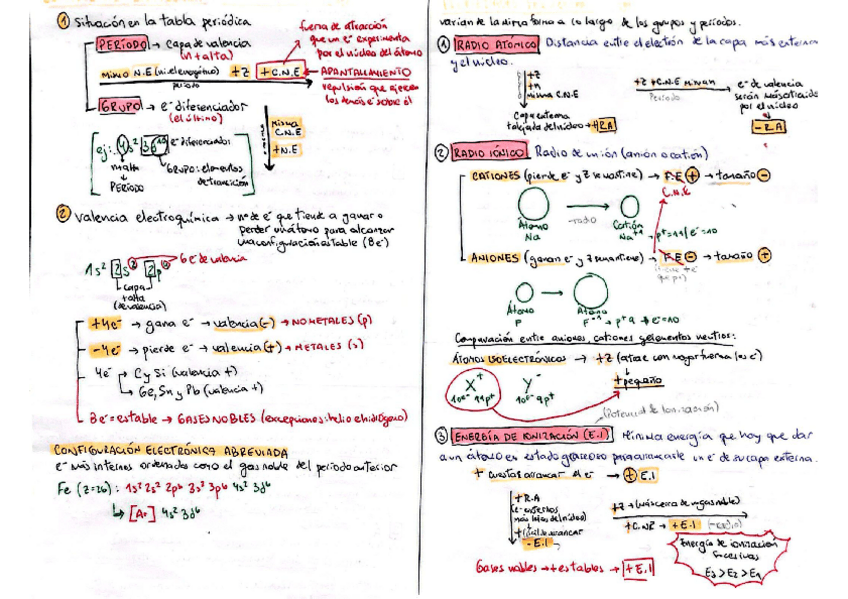 ① Situación en la tabla periódica
PERÍODO → Capa de valencia
(n + alta)
fuerza de atracción
que un e⁻ experimenta
por el núcleo del átomo
mismo N.E (ni. energético) +Z +C.N.E ← APANTALLAMIENTO
período
repulsión que ejercen
los demás e⁻ sobre él
GRUPO → e⁻ diferenciador
(el último)
misma
C.N.E
+N.E
ej: 4s² 3d¹⁰ e⁻ diferenciador
n + alta
↓
PERÍODO
GRUPO: elementos
de transición
② Valencia electroquímica → nº de e⁻ que tiende a ganar o
perder un átomo para alcanzar
una configuración estable (8e⁻)
1s² 2s² 2p⁴ 6e⁻ de valencia
capa
+ alta
(de valencia)
+4e⁻ → gana e⁻ → valencia (-) → NO METALES (p)
-4e⁻ → pierde e⁻ → valencia (+) → METALES (s)
4e⁻ → C y Si (valencia +)
→ Ge, Sn y Pb (valencia +)
8e⁻ = estable → GASES NOBLES (excepciones: helio e hidrógeno)
CONFIGURACIÓN ELECTRÓNICA ABREVIADA
e⁻ más internos ordenados como el gas noble del período anterior
Fe (Z=26): 1s² 2s² 2p⁶ 3s² 3p⁶ 4s² 3d⁶
↳ [Ar] 4s² 3d⁶
varían de la misma forma a lo largo de los grupos y períodos.
① RADIO ATÓMICO Distancia entre el electrón de la capa más externa
y el núcleo.
+Z
+n
misma C.N.E
Capa externa
+ alejada del núcleo → +RA
+Z +C.N.E
Período
→ e⁻ de valencia
serán más atraídos
por el núcleo
-RA
② RADIO IÓNICO Radio de un ión (anión o catión)
CATIONES (pierde e⁻ y Z se mantiene) → F.E ⊕ → tamaño ⊖
C.N.E
Átomo
Na
-radio
Catión
Na⁺¹ → p⁺=11 / e⁻=10
ANIONES (ganan e⁻ y Z se mantiene) → F.E ⊖ → tamaño ⊕
Átomo
F
→ p⁺ 9 → e⁻=10
Comparación entre aniones, cationes y elementos neutros:
ÁTOMOS ISOELECTRÓNICOS → +Z (atrae con mayor fuerza los e⁻)
↓
+ pequeño
X⁺ Y⁻
10e⁻ 11p⁺ 10e⁻ 9p⁺
(Potencial de Ionización)
③ ENERGÍA DE IONIZACIÓN (E.I) Mínima energía que hay que dar
a un átomo en estado gaseoso para arrancarle un e⁻ de su capa externa.
+ cuesta arrancar el e⁻ → ⊕ E.I
+R.A
(e⁻ externos
más lejos del núcleo)
+ fácil de arrancar
-E.I
+Z → (más cerca de un gas noble)
+C.N.E → +E.I (-radio)
Gases nobles → + estables → +E.I
Energía de ionización
sucesivas
E₃ > E₂ > E₁